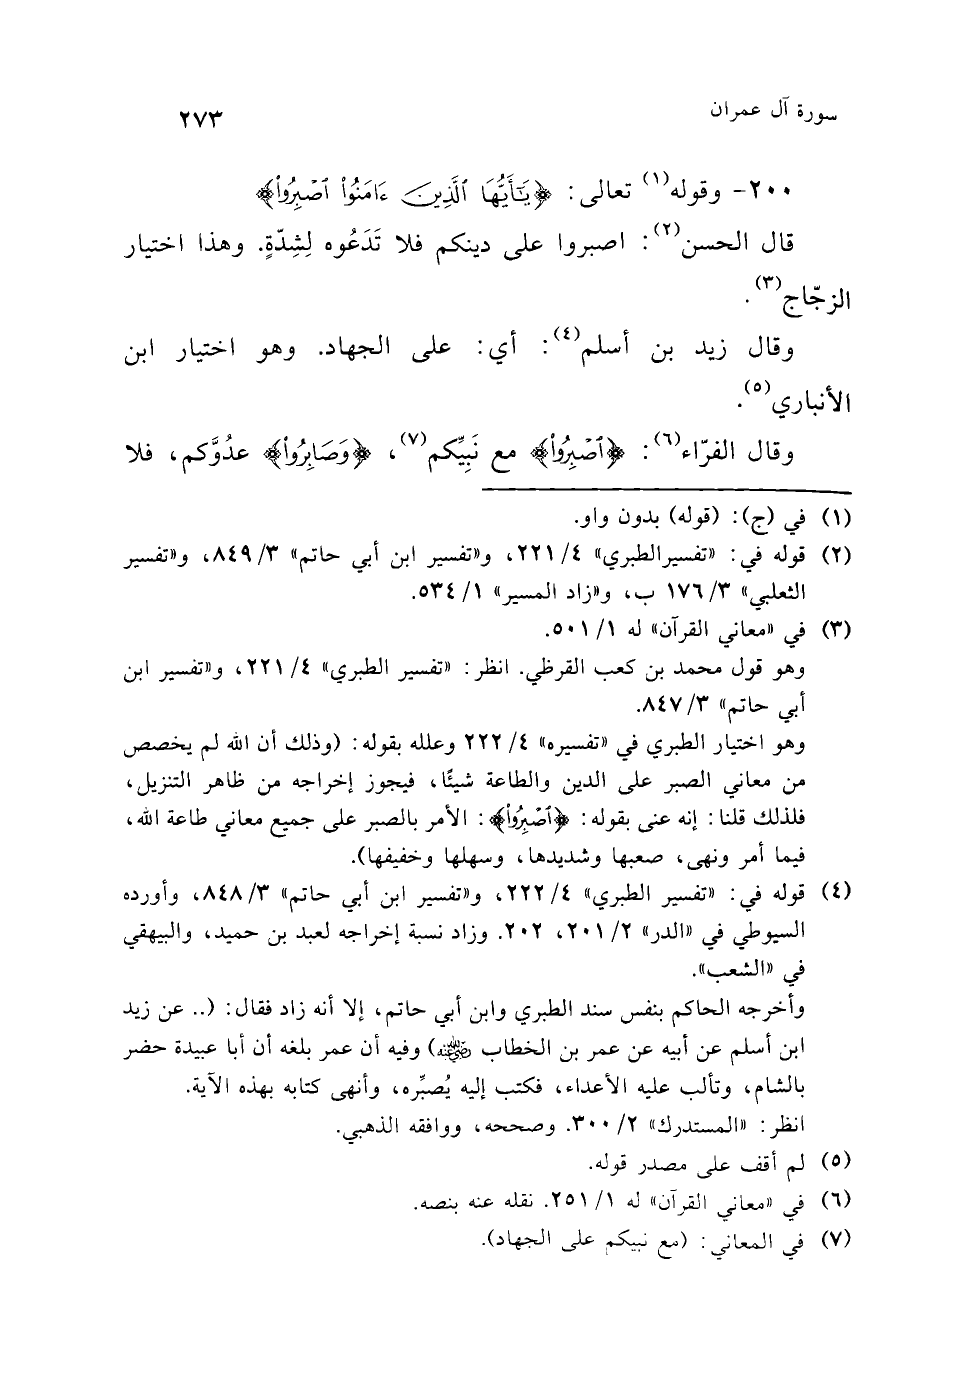 سورة آل عمران
٢٧٣
٢٠٠- وقوله(١) تعالى: ﴿يَٰٓأَيُّهَا ٱلَّذِينَ ءَامَنُواْ ٱصۡبِرُواْ﴾
قال الحسن(٢): اصبروا على دينكم فلا تَدَعُوه لِشِدّةٍ. وهذا اختيار
الزجّاج(٣).
وقال زيد بن أسلم(٤): أي: على الجهاد. وهو اختيار ابن
الأنباري(٥).
وقال الفرّاء(٦): ﴿ٱصۡبِرُواْ﴾ مع نَبِيِّكم(٧)، ﴿وَصَابِرُواْ﴾ عدُوَّكم، فلا
(١) في (ج): (قوله) بدون واو.
(٢) قوله في: «تفسيرالطبري» ٤/ ٢٢١، و«تفسير ابن أبي حاتم» ٣/ ٨٤٩، و«تفسير
الثعلبي» ٣/ ١٧٦ ب، و«زاد المسير» ١/ ٥٣٤.
(٣) في «معاني القرآن» له ١/ ٥٠١.
وهو قول محمد بن كعب القرظي. انظر: «تفسير الطبري» ٤/ ٢٢١، و«تفسير ابن
أبي حاتم» ٣/ ٨٤٧.
وهو اختيار الطبري في «تفسيره» ٤/ ٢٢٢ وعلله بقوله: (وذلك أن الله لم يخصص
من معاني الصبر على الدين والطاعة شيئًا، فيجوز إخراجه من ظاهر التنزيل،
فلذلك قلنا: إنه عنى بقوله: ﴿ٱصۡبِرُواْ﴾: الأمر بالصبر على جميع معاني طاعة الله،
فيما أمر ونهى، صعبها وشديدها، وسهلها وخفيفها).
(٤) قوله في: «تفسير الطبري» ٤/ ٢٢٢، و«تفسير ابن أبي حاتم» ٣/ ٨٤٨، وأورده
السيوطي في «الدر» ٢/ ٢٠١، ٢٠٢. وزاد نسبة إخراجه لعبد بن حميد، والبيهقي
في «الشعب».
وأخرجه الحاكم بنفس سند الطبري وابن أبي حاتم، إلا أنه زاد فقال: (.. عن زيد
ابن أسلم عن أبيه عن عمر بن الخطاب رضي الله عنه) وفيه أن عمر بلغه أن أبا عبيدة حضر
بالشام، وتألب عليه الأعداء، فكتب إليه يُصبِّره، وأنهى كتابه بهذه الآية.
انظر: «المستدرك» ٢/ ٣٠٠. وصححه، ووافقه الذهبي.
(٥) لم أقف على مصدر قوله.
(٦) في «معاني القرآن» له ١/ ٢٥١. نقله عنه بنصه.
(٧) في المعاني: (مع نبيكم على الجهاد).